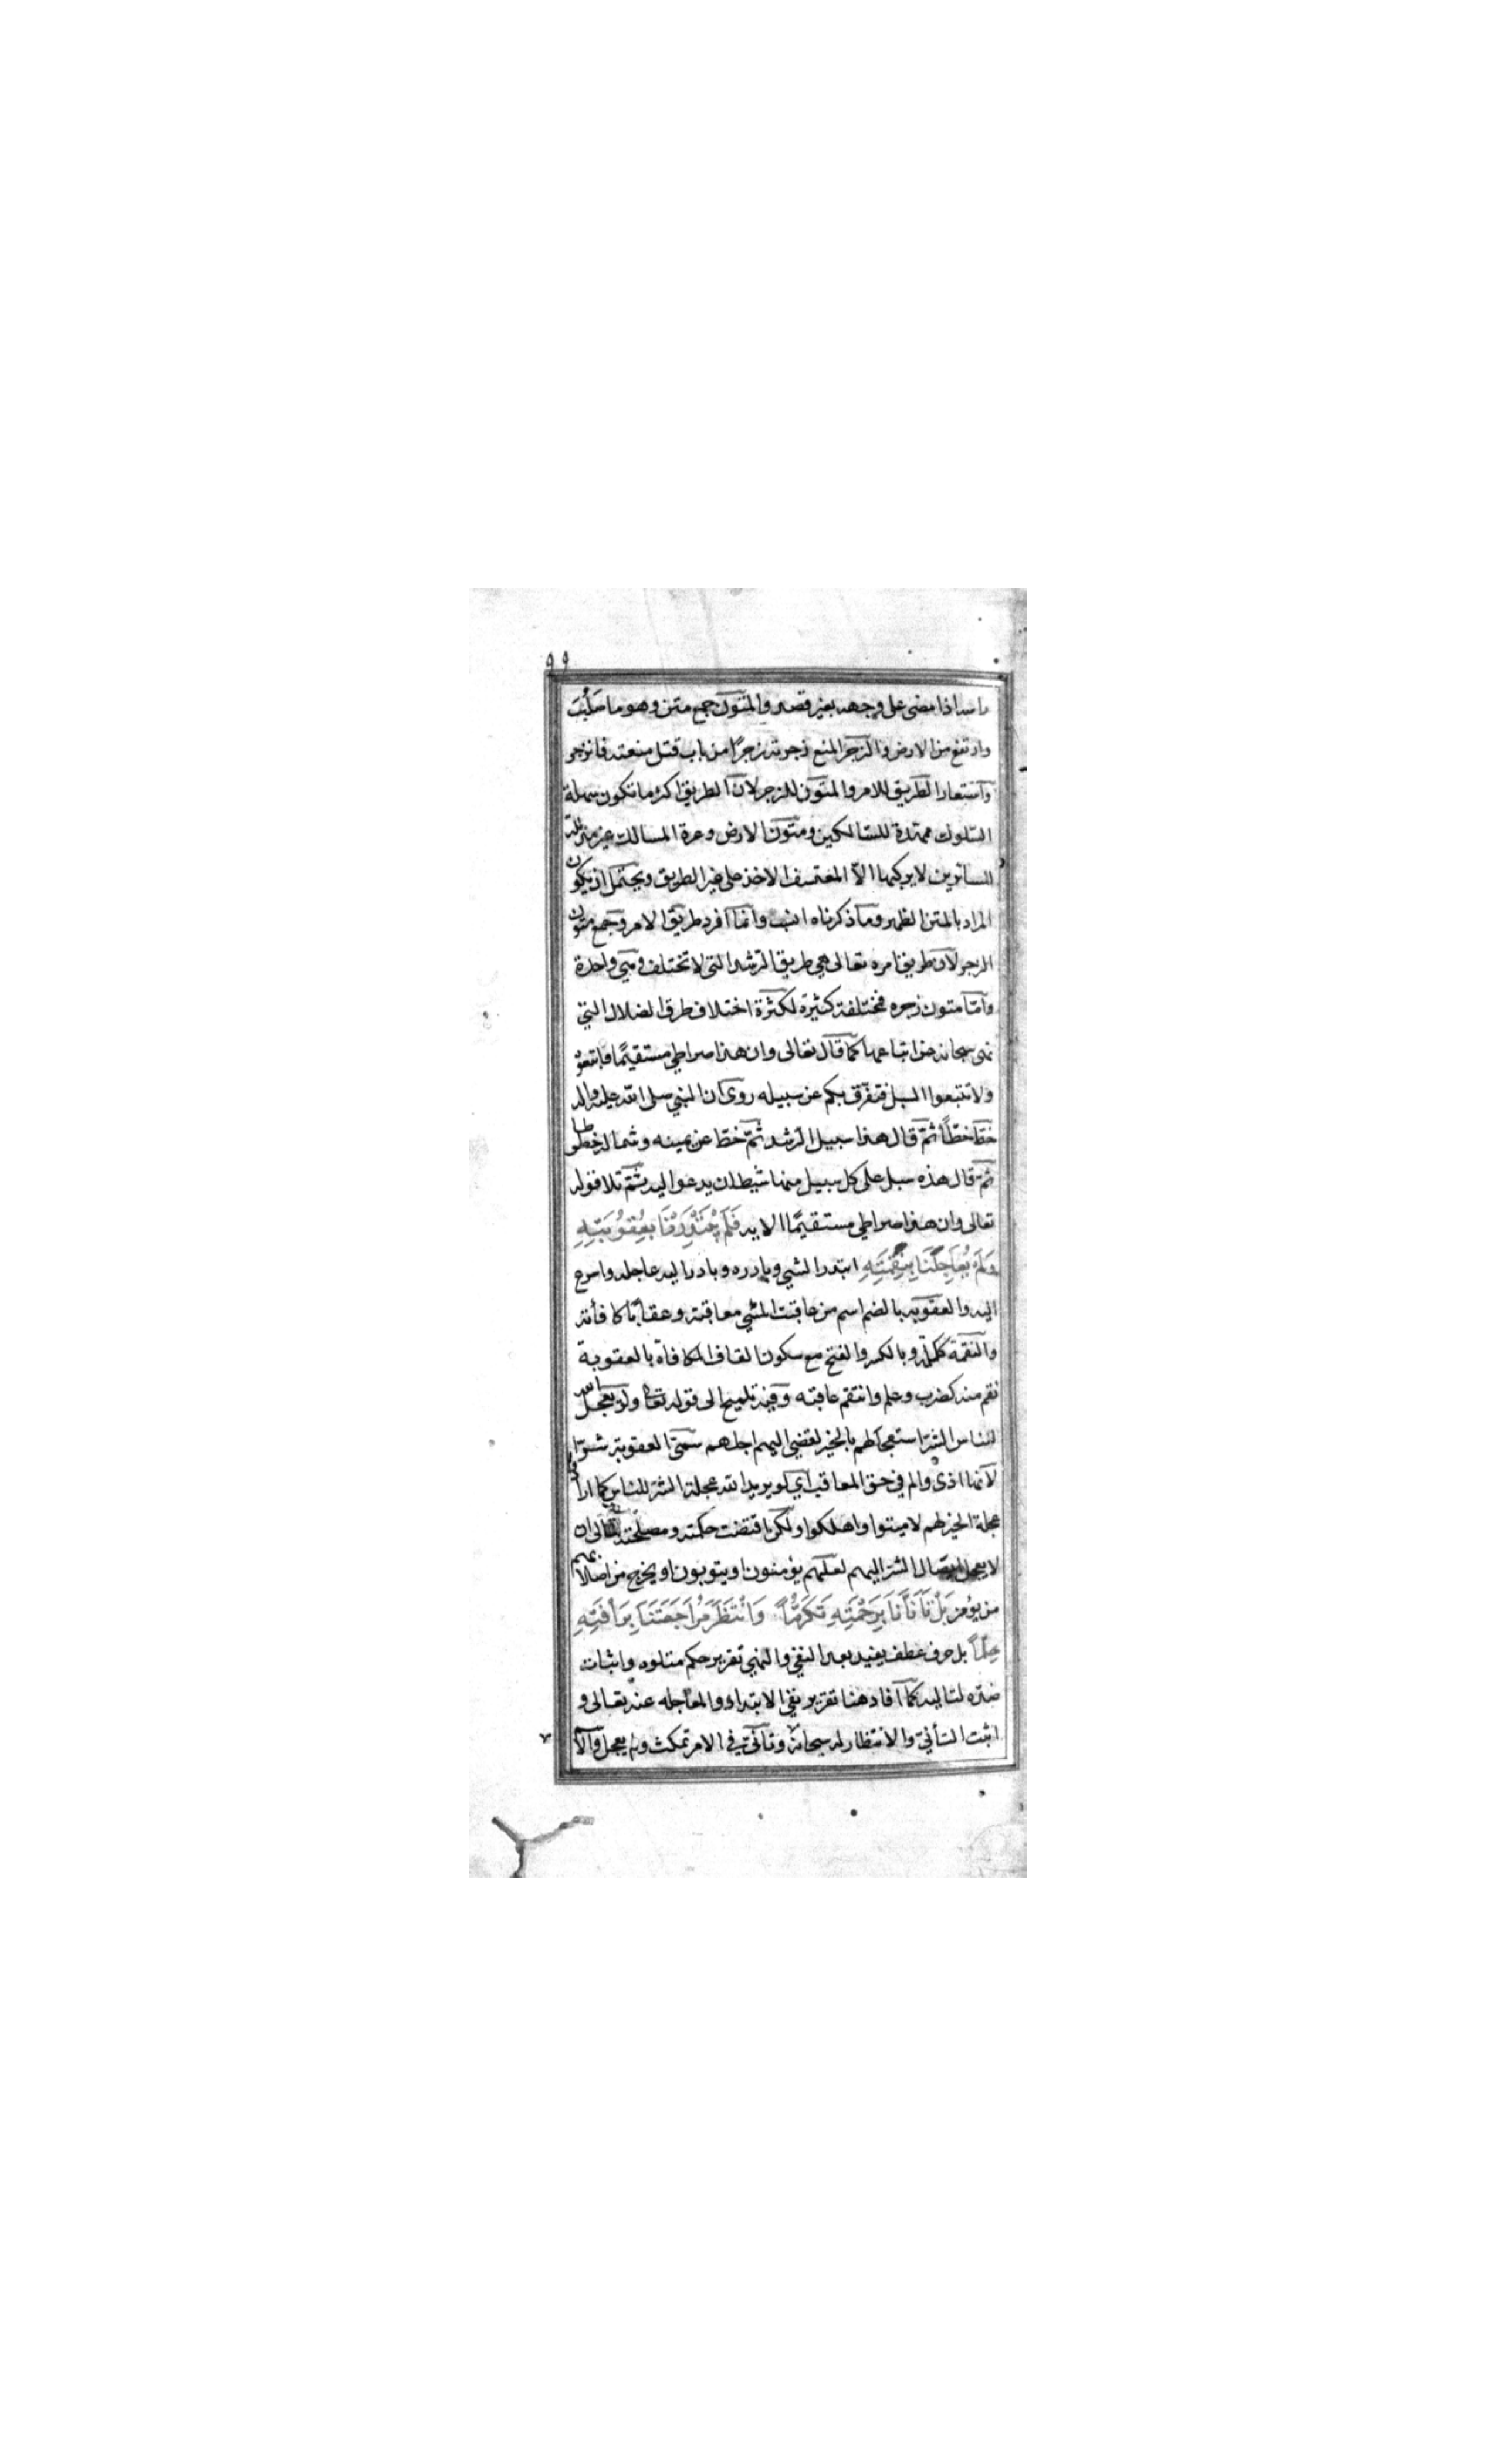 ٩٩
راسه اذا مضى على وجهه بغير قصد والمتون جمع متن وهو ما صلبت
وارتفع من الارض والزجر المنع زجرته زجرًا من باب قتل منعته فانزجر
وآستعار الطريق للامر والمتون للزجر لان الطريق اكثر ما تكون سهلة
السّلوك ممتدة للسّالكين ومتون الارض وعرة المسالك غير مذللة
للسائرين لا يركبها الاّ المعتسف الاخذ على غير الطريق ويحتمل ان يكون
المراد بالمتن الظهر وما ذكرناه انسب وانما افرد طريق الامر وجمع متون
الزجر لان طريق امره تعالى هي طريق الرّشد التي لا تختلف وهي واحدة
وآمّا متون زجره فمختلفة كثيرة لكثرة اختلاف طرق الضلال التي
نهى سبحانه عن اتباعها كما قال تعالى وان هذا صراطي مستقيمًا فاتبعوه
ولا تتبعوا السبل فتفرّق بكم عن سبيله روى ان النبي صلى الله عليه واله
خطّ خطّاً ثمّ قال هذا سبيل الرّشد ثمّ خطّ عن يمينه وشماله خطوطا
ثمّ قال هذه سبل على كل سبيل منها شيطان يدعوا اليه ثمّ تلا قوله
تعالى وان هذا صراطي مستقيمًا الايه فَلَمْ يَبْتَدِرْنَا بِعُقُوبَتِهِ
وَلَمْ يُعَاجِلْنَا بِنِقْمَتِهِ ابتدر الشيي وبادره وبادر اليه عاجله واسرع
اليه والعقوبة بالضم اسم من عاقبت المسيء معاقبة وعقابًا كافأته
والنقمة ككلمة وبالكسر والفتح مع سكون القاف المكافاة بالعقوبة
نقم منه كضرب وعلم وانتقم عاقبه وفيه تلميح الى قوله تعالى ولو يعجل الله
للناس الشرّ استعجالهم بالخير لقضي اليهم اجلهم سمّى العقوبة شرّا
لآنها اذى والم في حق المعاقب اي لو يريد الله عجلة الشرّ للناس كما اراد
عجلة الخير لهم لاميتوا واهلكوا ولكن اقتضت حكمته ومصلحته تعالى ان
لا يعجل ايصال الشر اليهم لعلهم يؤمنون او يتوبون او يخرج من اصلابهم
من يؤمن بَلْ تَأَنَّانَا بِرَحْمَتِهِ تَكَرُّمًا وَانْتَظَرَ مُرَاجَعَتَنَا بِرَأْفَتِهِ
حِلْمًا بل حرف عطف يفيد بعد النفي والنهي تقرير حكم متلوه واثبات
ضدّه لتاليه كما آفاد هنا تقرير نفي الابتدار والمعاجله عنه تعالى و
اثبت التأنيّ والانتظار له سبحانه وتأنّى في الامر تمكث ولم يعجل والا